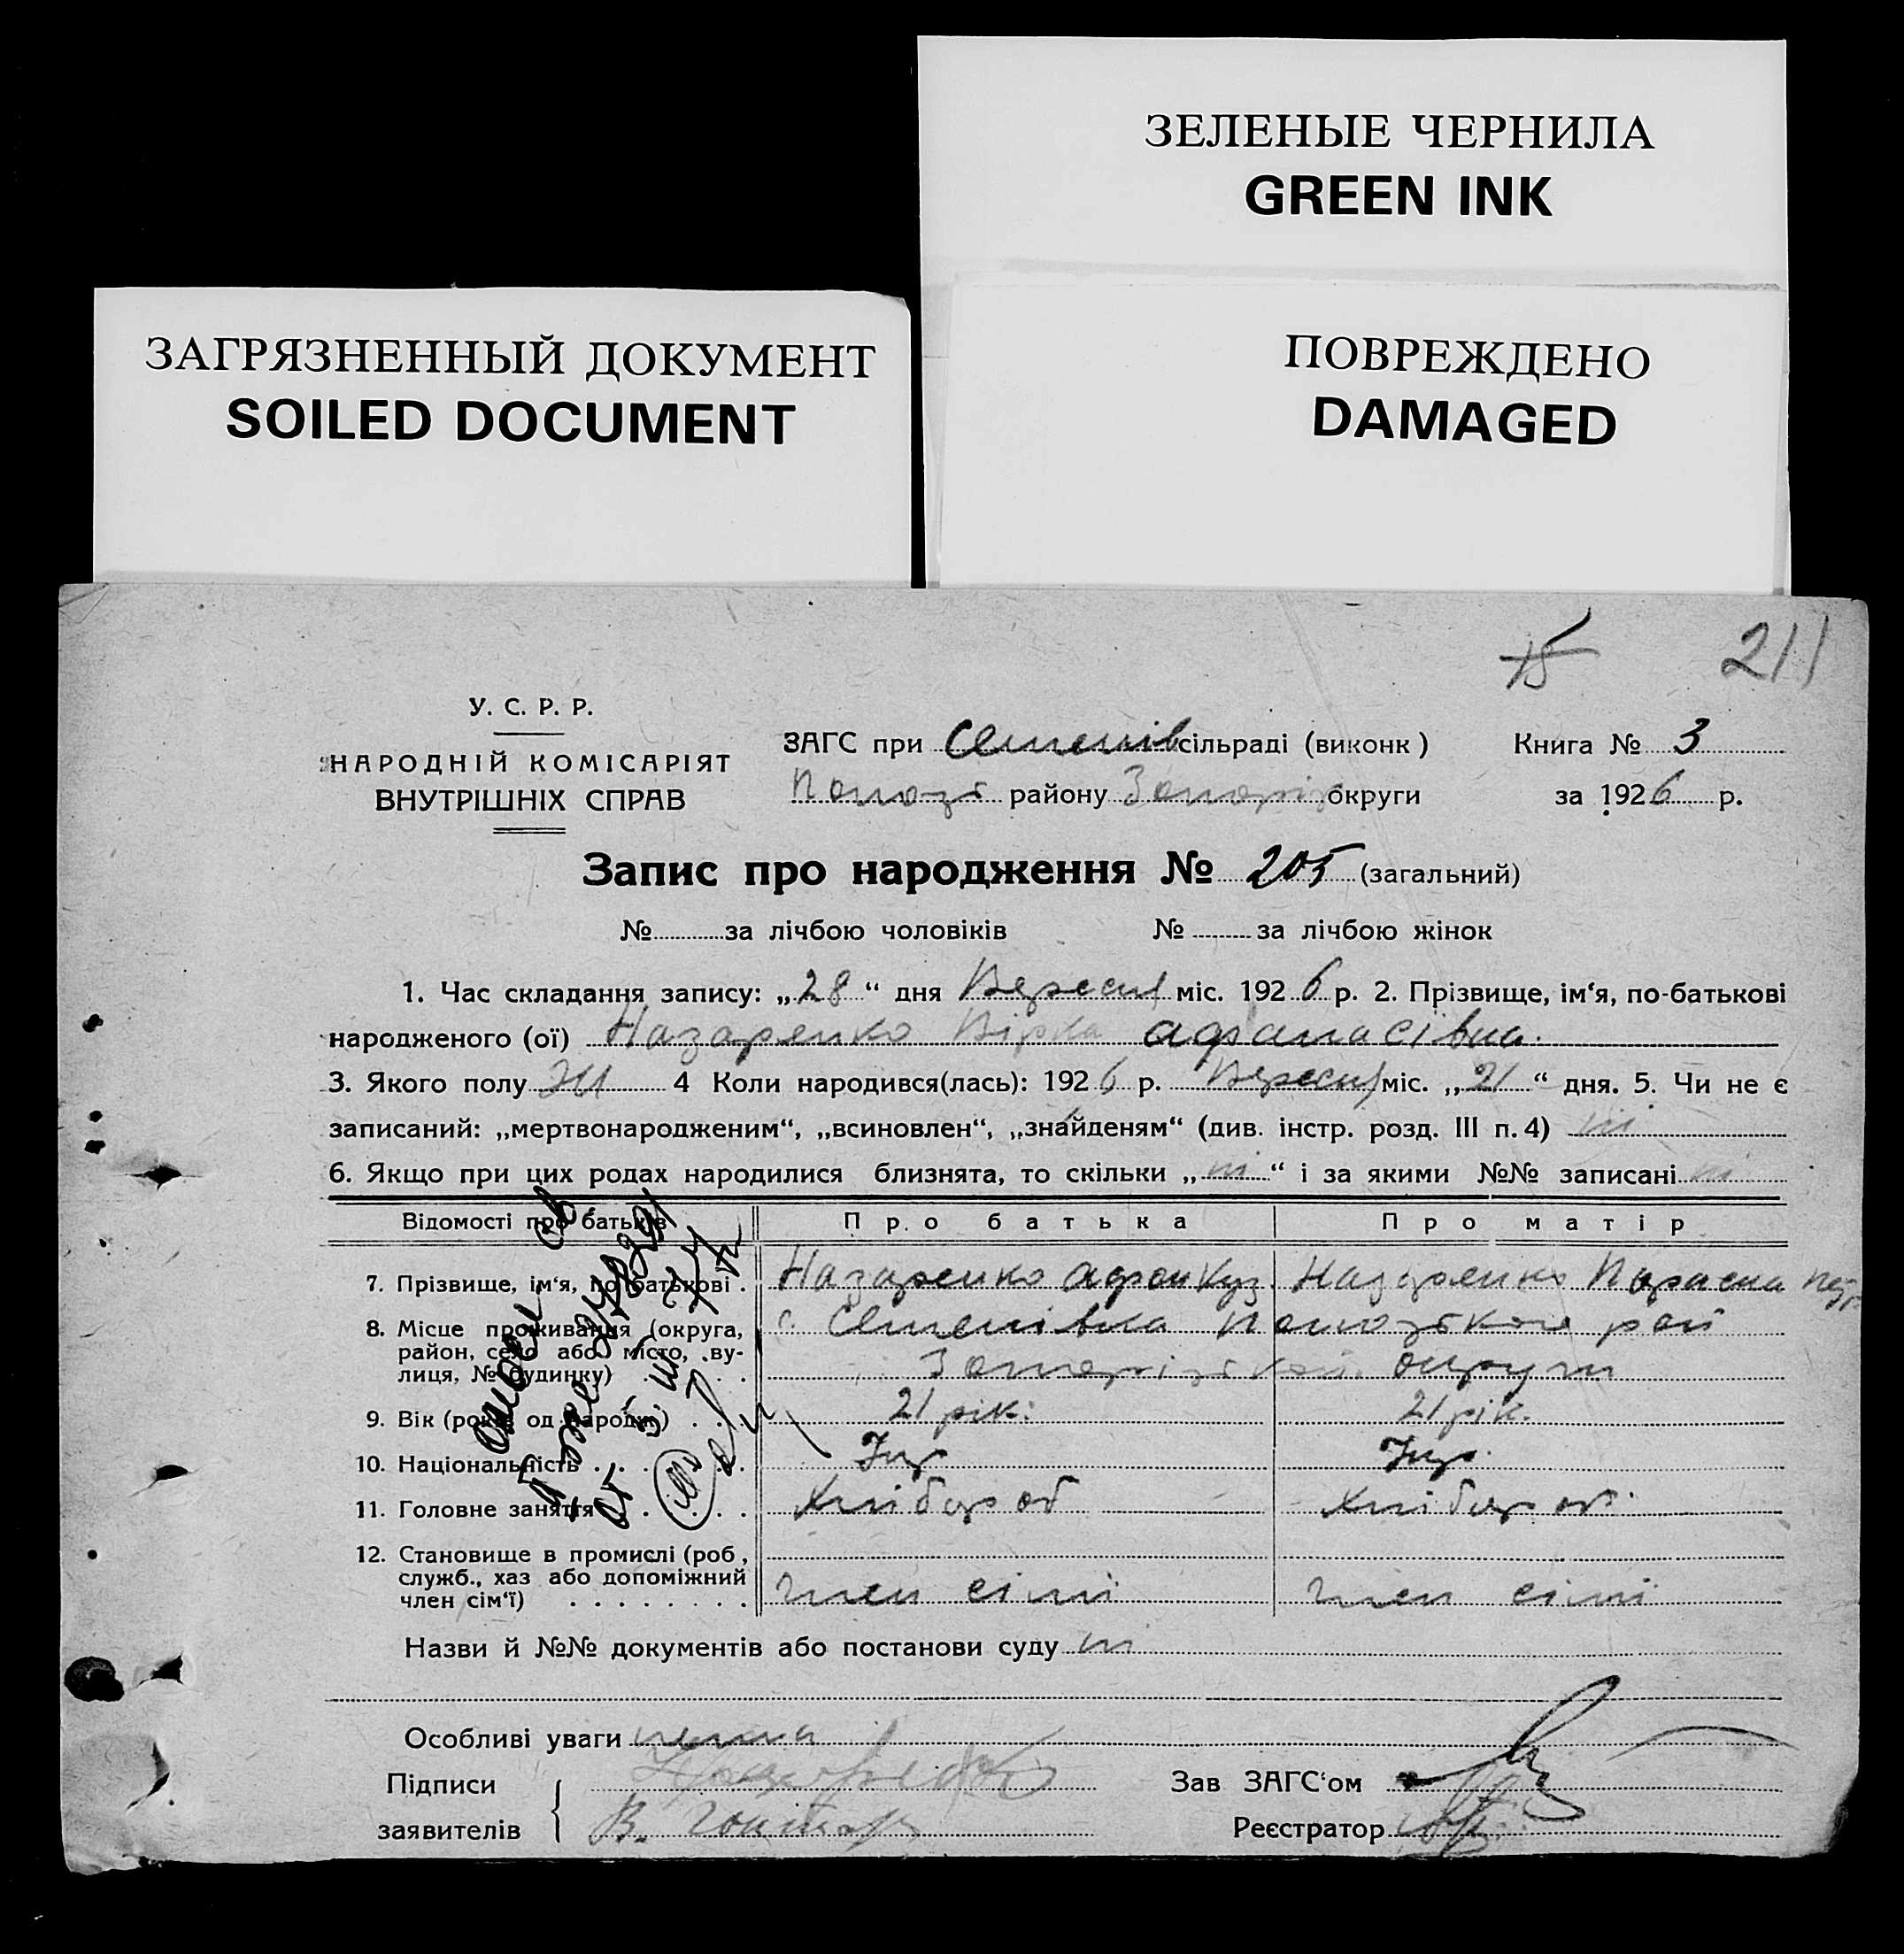 ЗЕЛЕНЫЕ ЧЕРНИЛА
GREEN INK
ЗАГРЯЗНЕННЫЙ ДОКУМЕНТ
SOILED DOCUMENT
ПОВРЕЖДЕНО
DAMAGED
15 211
У. С. Р. Р.
НАРОДНІЙ КОМІСАРІЯТ
ВНУТРІШНІХ СПРАВ
ЗАГС при Семенів сільраді (виконк)
району Запоріз округи
Книга № 3
за 1926 р.
Запис про народження № 205 (загальний)
№ за лічбою чоловіків № за лічбою жінок
1. Час складання запису: „28“ дня Вересня міс. 1926 р. 2. Прізвище, ім‘я, по-батькові
народженого (ої) Назаренко Вірка Афанасівна.
3. Якого полу жі 4 Коли народився(лась): 1926 р. Вересня міс. „21“ дня. 5. Чи не є
записаний: „мертвонародженим“, „всиновлен“, „знайденям“ (див. інстр. розд. III п. 4) ні
6. Якщо при цих родах народилися близнята, то скільки „ні“ і за якими №№ записані ні
Відомості про батьків Про батька Про матір
7. Прізвище, ім‘я, по-батькові Назаренко Афан Куз. Назаренко Параска
8. Місце проживання (округа, с. Семенівка
район, село або місто, ву-
лиця, № будинку) округи
9. Вік (років од народж.) 21 рік. 21 рік.
10. Національність Укр Укр.
11. Головне заняття Хлібороб Хлібороб.
12. Становище в промислі (роб,
служб., хаз або допоміжний
член сім‘ї) член сімі член сімі
Назви й №№ документів або постанови суду ні
Особливі уваги нема
Підписи
заявителів В.
Зав ЗАГС‘ом
Реєстратор